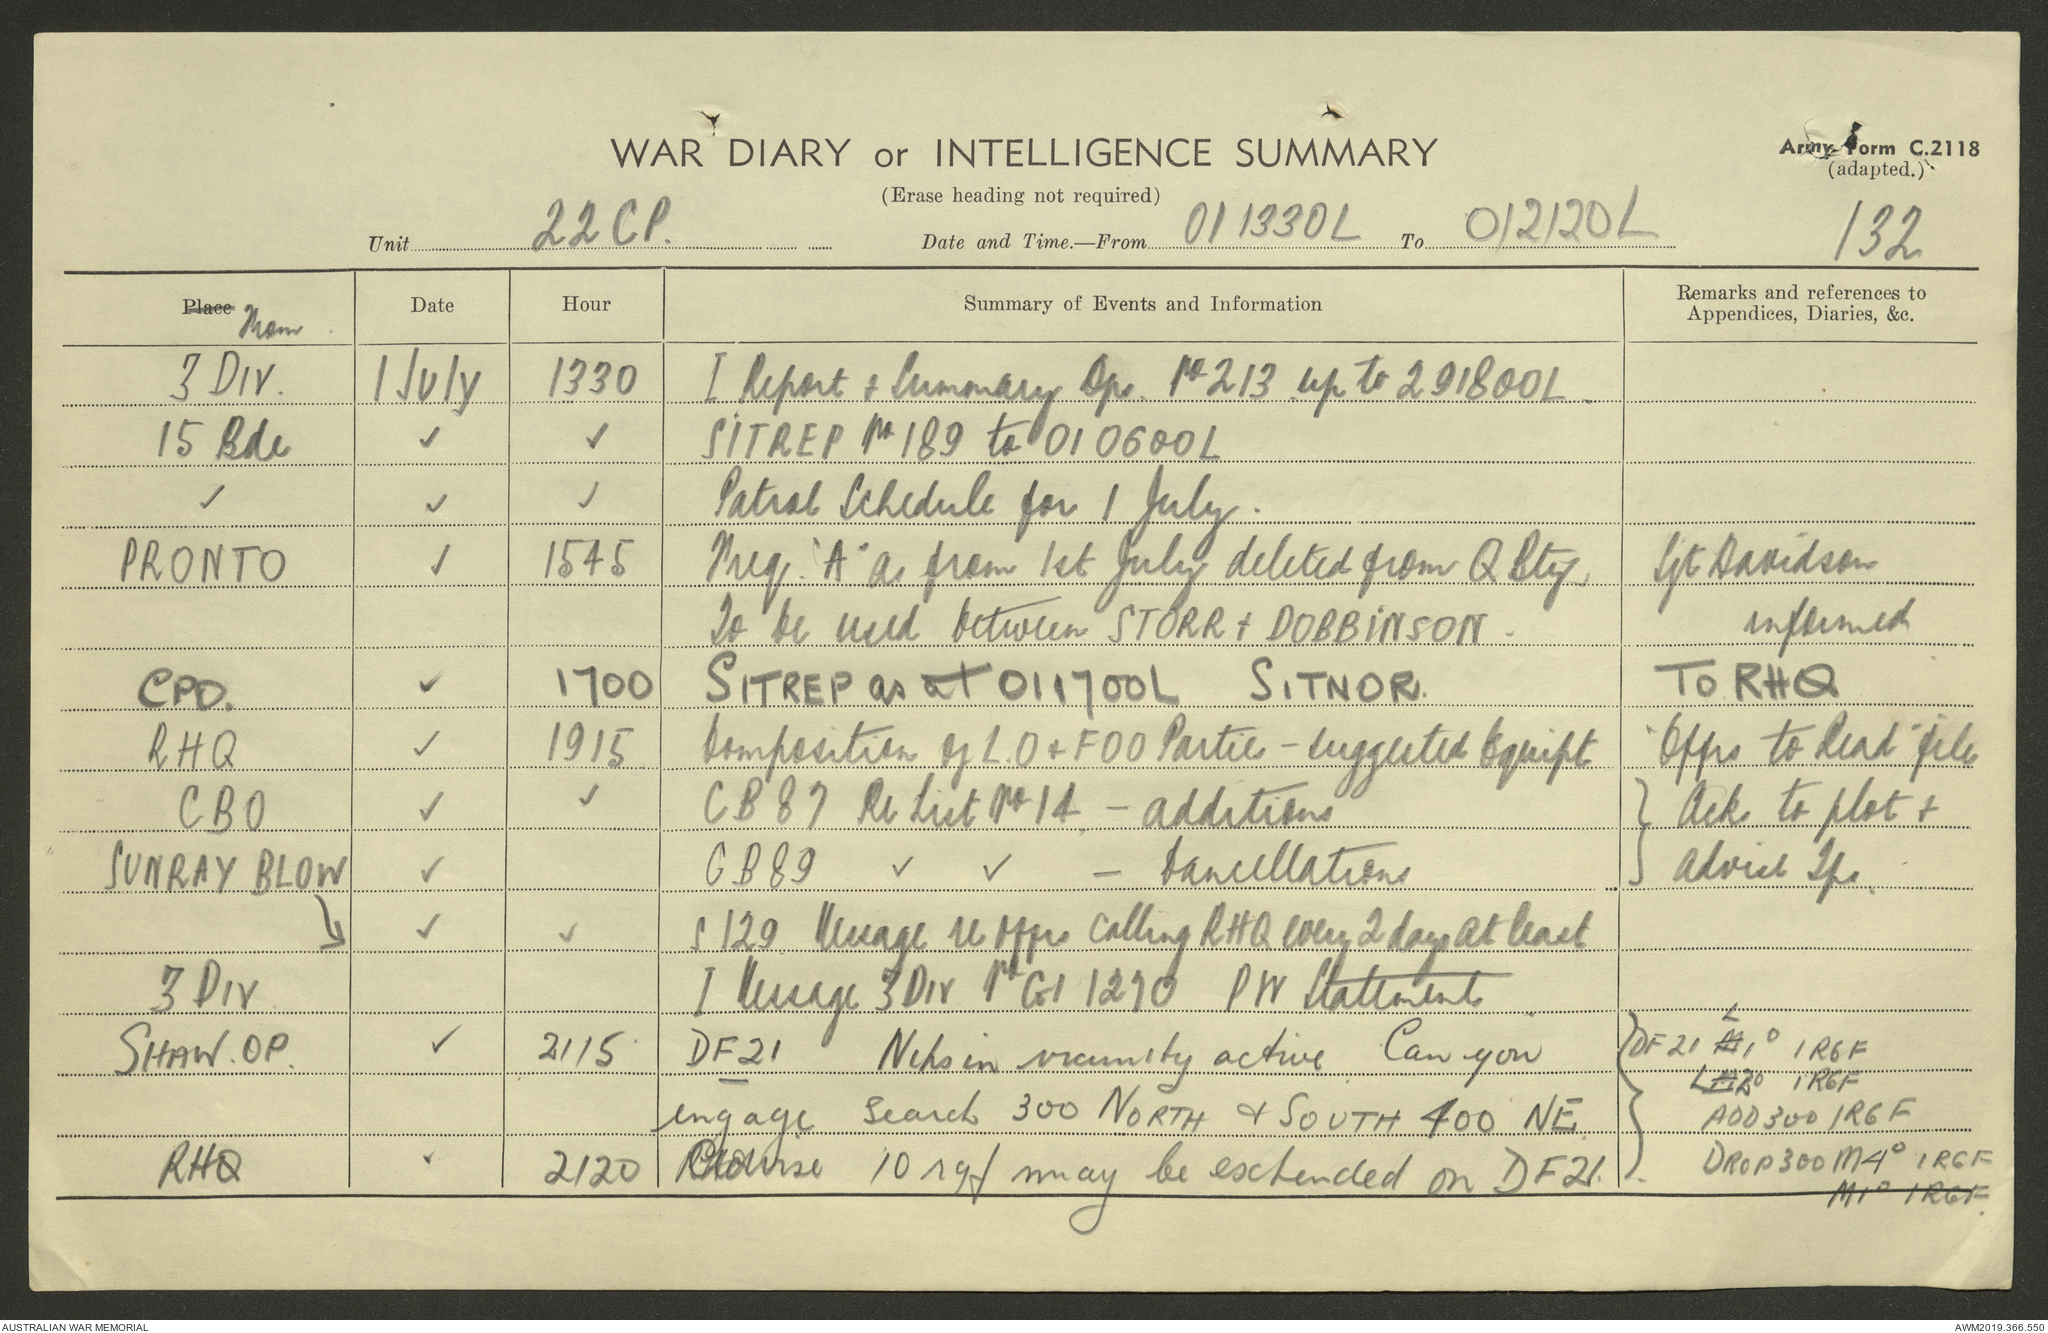 WAR DIARY or INTELLIGENCE SUMMARY
Army Form C.2118
(adapted.)
(Erase heading not required)
132
Unit 22 CP. Date and Time.—From 011330L To 012120L
Place From Date Hour Summary of Events and Information Remarks and references to Appendices, Diaries, &c.
3 DIV. 1 July 1330 I Report + Summary Ops. No 213 up to 291800L
15 Bde ✓ ✓ SITREP No 189 to 010600L
✓ ✓ ✓ Patrol Schedule for 1 July.
PRONTO ✓ 1545 Freq. "A" as from 1st July deleted from Q Bty. Sgt Davidson
To be used between STORR + DOBBINSON. informed
CPO. ✓ 1700 SITREP as at 011700L SITNOR. TO RHQ
RHQ ✓ 1915 Composition of L.O + FOO Parties - suggested Equipt "Offrs to Read" file
CBO ✓ ✓ CB 87 Re List No 14 - additions Acks to plot +
SUNRAY BLOW ✓ CB89 ✓ ✓ - Cancellations advise
✓ ✓ S 129 Message re offrs calling RHQ every 2 days at least
3 DIV I Message 3 DIV No GI 1270 PW Statements
SHAW. OP. ✓ 2115 DF 21 Nips in vicinity active Can you DF 21 L 1° 1 RGF
L 1RGF
engage search 300 NORTH & SOUTH 400 NE. ADD 300 1RGF
RHQ ✓ 2120 10 rgf may be exchended on DF 21. DROP 300 M4° 1 RGF
M1° 1 RGF.
AUSTRALIAN WAR MEMORIAL
AWM2019.366.550